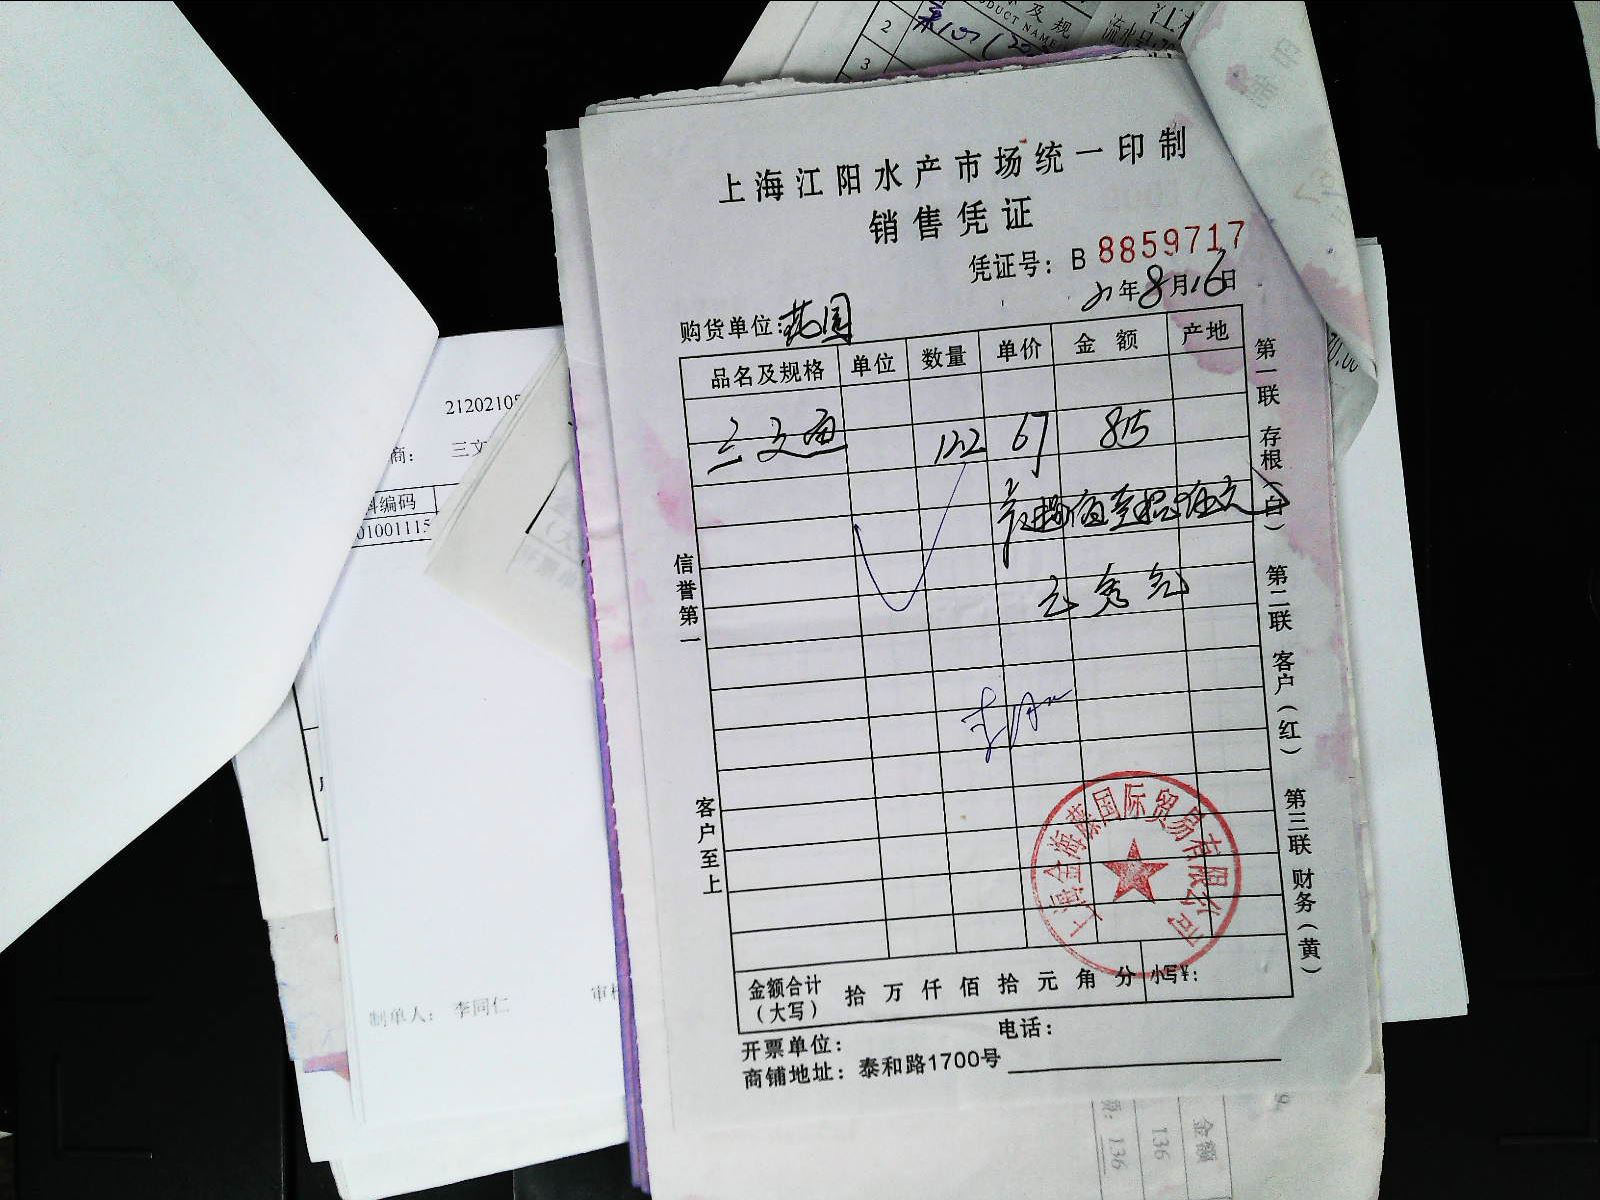 2
3
品及规
PRODUCT NAME
流水号:
上海江阳水产市场统一印制
销售凭证
凭证号: B 8859717
21年8月16日
购货单位:花园
品名及规格 单位 数量 单价 金额 产地
三文鱼 12.2 67 815
信誉第一
客户至上
第一联 存根(白)
第二联 客户(红)
第三联 财务(黄)
上海金海藤国际贸易有限公司
金额合计(大写) 拾 万 仟 佰 拾 元 角 分 小写¥:
开票单位: 电话:
商铺地址: 泰和路1700号
2120210
商: 三文
料编码
01001115
制单人: 李同仁 审
金额
136
136